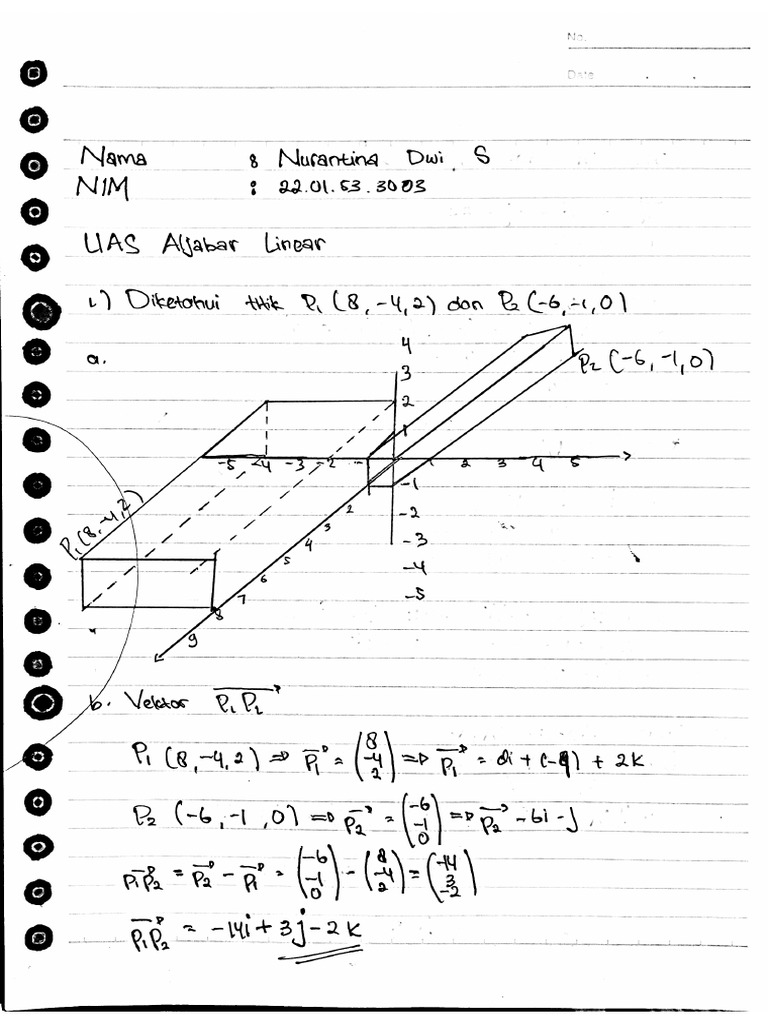 No.
Date
Nama : Nurantina Dwi S
NIM : 22.01.53.3003
UAS Aljabar Linear
1) Diketahui titik P₁ (8, -4, 2) dan P₂ (-6, -1, 0)
a.
4
3
2
1
P₂ (-6, -1, 0)
-5 -4 -3 -2 - 2 3 4 5
-1
-2
-3
-4
-5
2
3
4
5
6
7
8
9
P₁ (8, -4, 2)
b. Vektor P₁P₂→
P₁ (8, -4, 2) ⇒ P₁→ = (8 -4 2) ⇒ P₁→ = 8i + (-4) + 2k
P₂ (-6, -1, 0) ⇒ P₂→ = (-6 -1 0) ⇒ P₂→ - 6i - j
P₁P₂→ = P₂→ - P₁→ = (-6 -1 0) - (8 -4 2) = (-14 3 -2)
P₁P₂→ = -14i + 3j - 2k